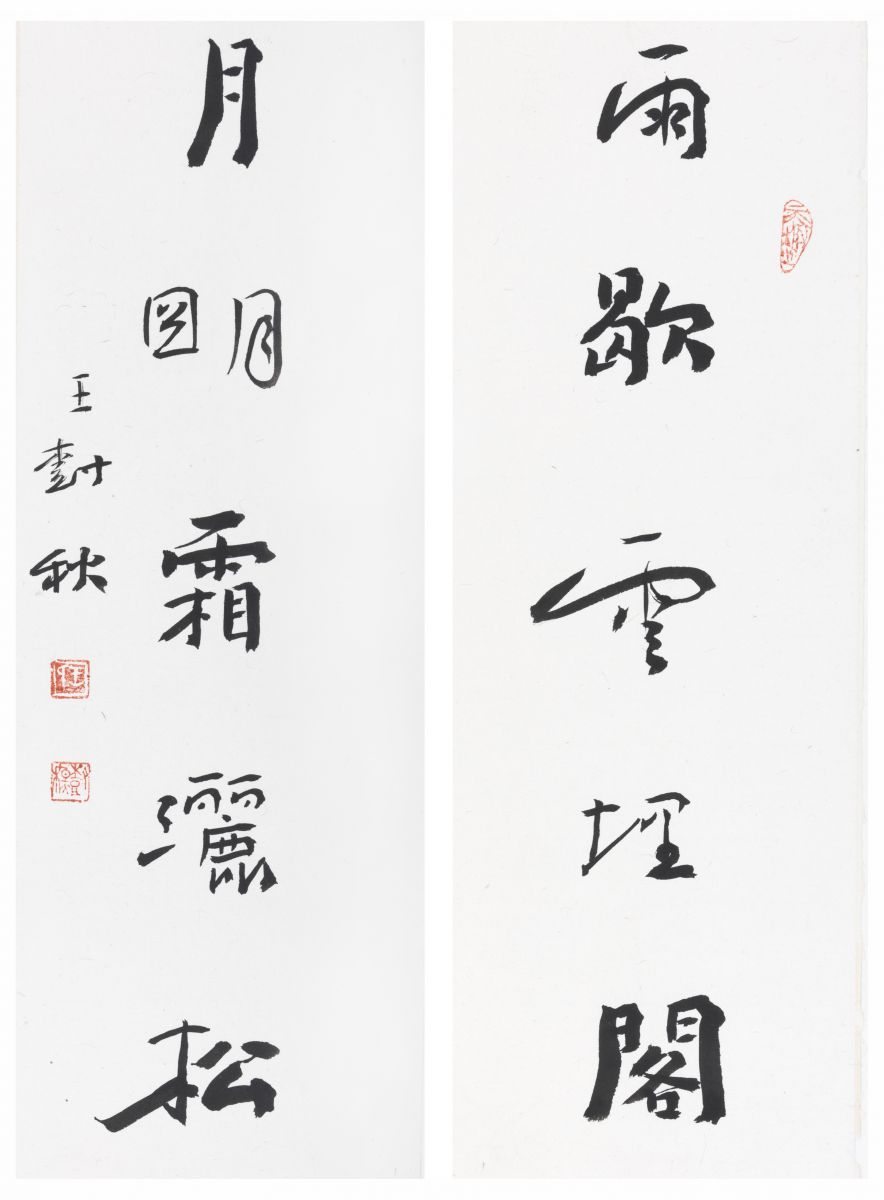 雨歇雲埋閣
月明霜灑松
王樹秋